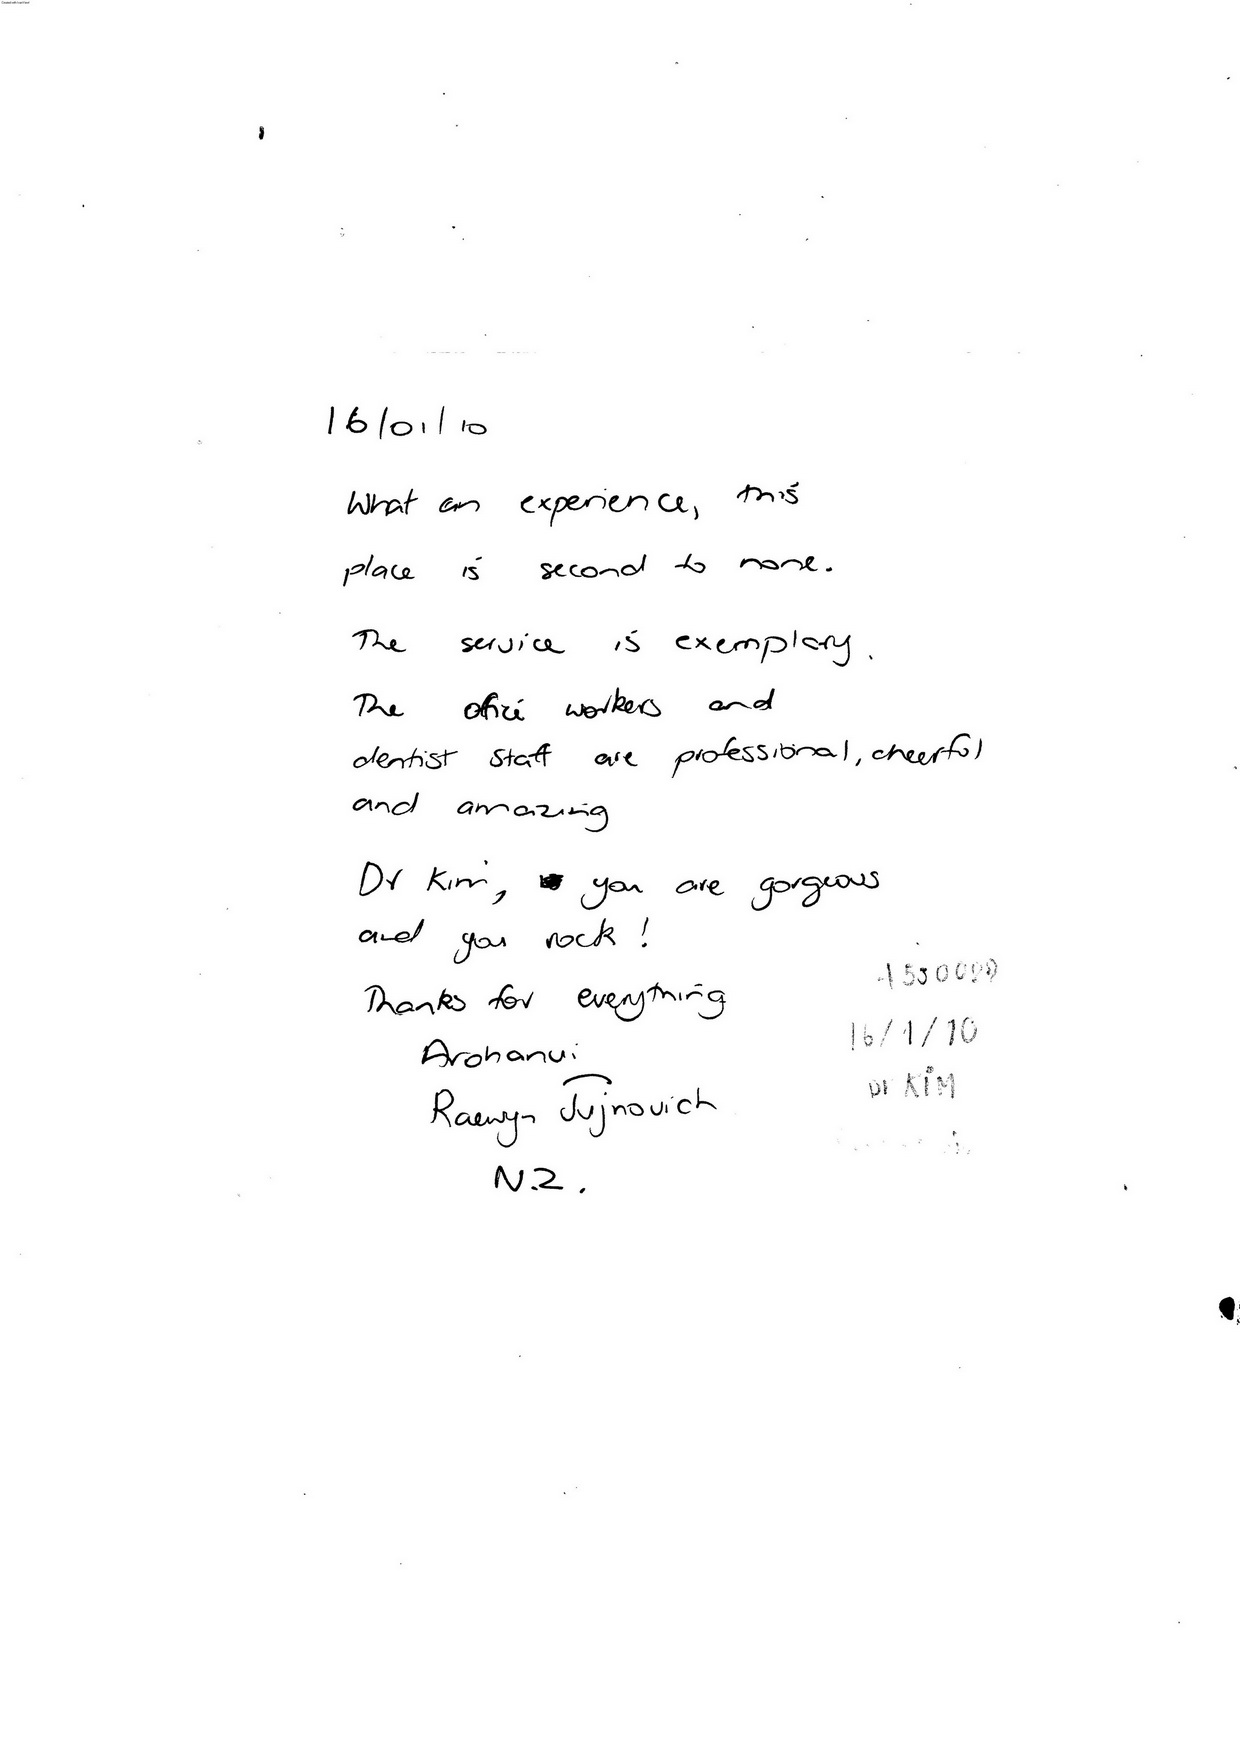 16/01/10
What an experience, this
place is second to none.
The service is exemplary.
The ofice workers and
dentist staff are professional, cheerful
and amazing
Dr Kim, you are gorgeous
and you rock!
Thanks for everything
Arohanui
Raewyn Jujnovich
N.Z.
16/1/10
Dr KiM